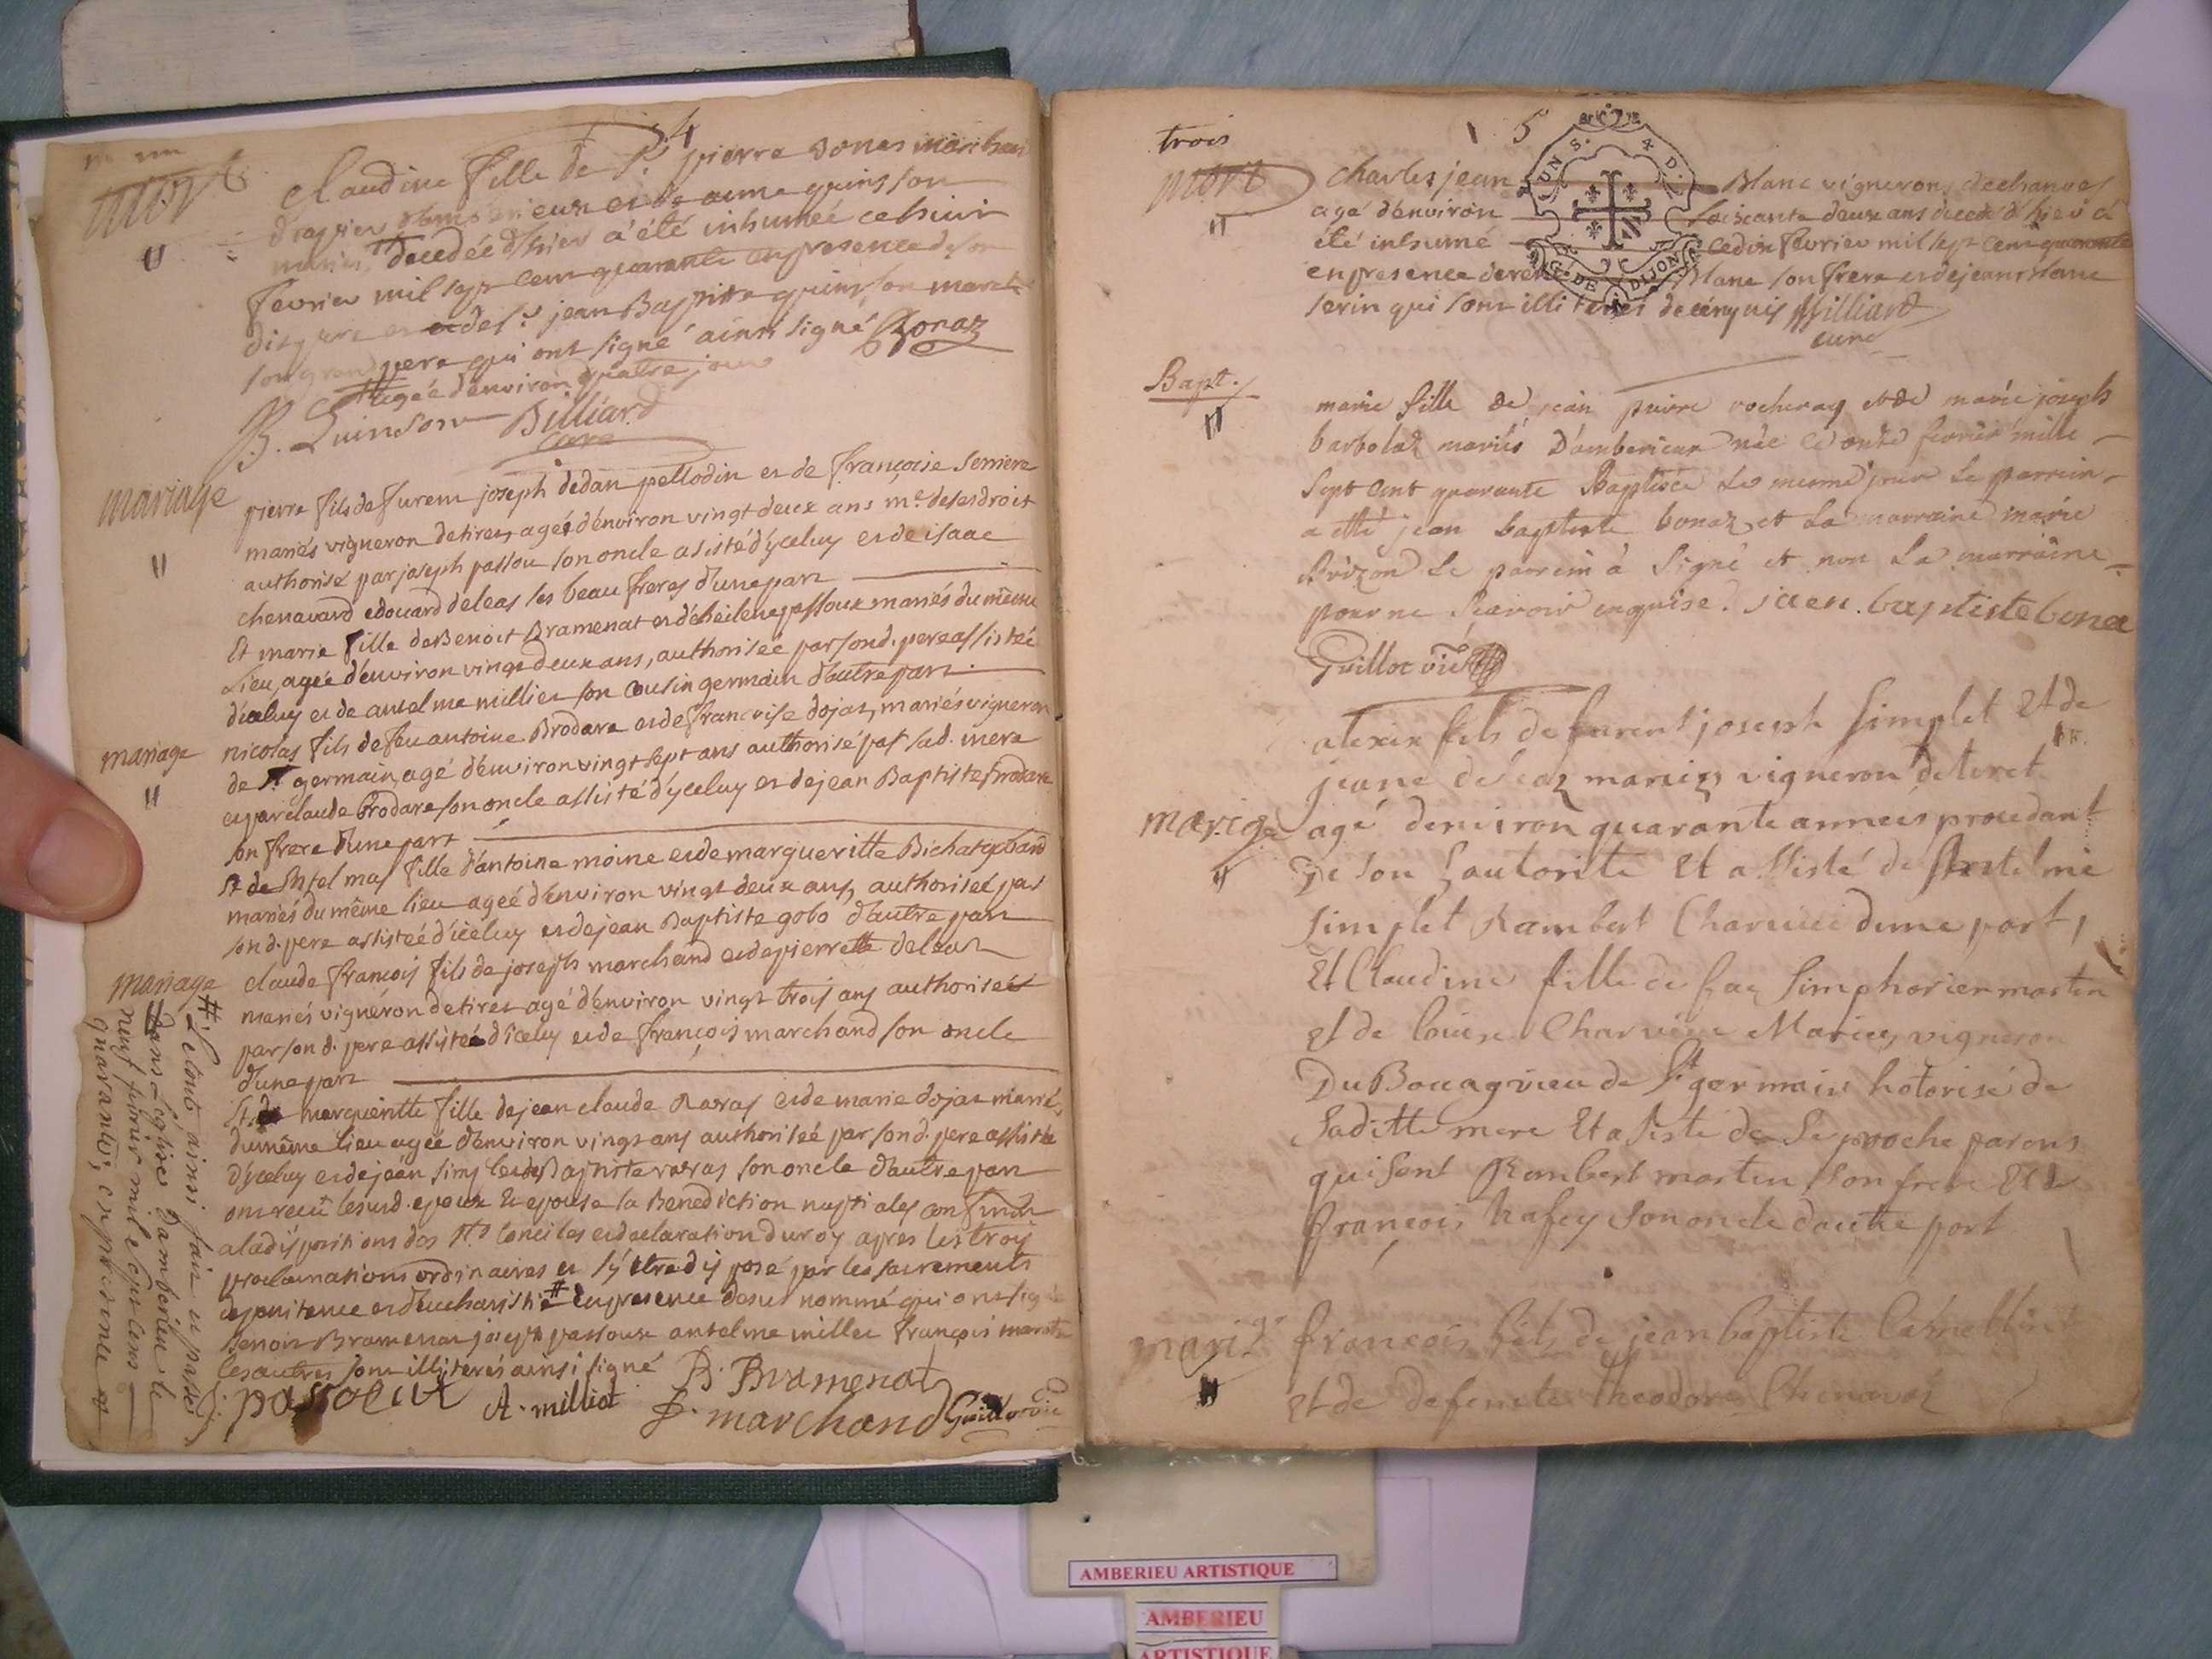 4
mort
claudine fille de Sr. pierre Bonaz marchand
drapier d'amberieux et de aime quinsson
mariés, decedée d'hier a été inhumée ce huit
fevrier mil sept cent quarante en presence de son
dit pere et de Sr. jean Baptiste quinson march.
son grand pere qui ont signé ainsi signé Bonaz
# agée d'environ quatre jour
B. Quinson Billiard
cure
mariage
pierre fils de furent joseph dedan pellodin et de françoise serriere
mariés vigneron de tiret, agé d'environ vingt deux ans me. de ses droit
authorisé par joseph passou son oncle asisté d'yceluy et de isaac
chenavard edouard deleas ses beau freres d'une part
Et marie fille de Benoit Bramenat et d'heilene passoux mariés du même
Lieu, agée d'environ vingt deux ans, authorisée par son d. pere assistée
d'iceluy et de anselme millier son cousin germain d'autre part
mariage
nicolas fils de feu antoine Brodare et de francoise dojat, mariés vigneron
de St. germain, agé d'environ vingt sept ans authorisé par sad. mere
et par claude Brodare son oncle assisté d'yceluy et de jean Baptiste Brodare
son frere d'une part
Et de Antel mas fille d'antoine moine et de margueritte Bichat
mariés du même lieu agée d'environ vingt deux ans, authorisée par
son d. pere assistée d'iceluy et de jean Baptiste gobo d'autre part
mariage
claude françois fils de joseph marchand et de pierrette deleas
mariés vigneron de tiret agé d'environ vingt trois ans authorisé
par son d. pere assisté d'iceluy et de françois marchand son oncle
d'une part
Et de margueritte fille de jean claude Ravas et de marie dojat mariés
du même lieu agée d'environ vingt ans authorisée par son d. pere assistée
d'yceluy et de jean Baptiste ravas son oncle d'autre part
ont reçu lesusd. epoux et epouse la Benediction nuptiales
a la dispositions des Sts. Conciles et declaration du roy apres les trois
proclamations ordinaires et s'y être disposé par les sacrements
de penitence et d'eucharistie # en presence des nommé qui ont signé
Benoit Bramenat joseph passoux anselme millet françois march.
les autres sont illiterés ainsi signé B. Bramenat
J. passoeut A. milliet F. marchand Guillot vic
#. Le tout ainsi fait et passé
dans L'eglise d'amberieu le
neuf fevrier mil sept cens
quarante, en presence
trois
5
mort
charles jean Blanc vigneron de chanves
agé d'environ soixante deux ans decedé d'hier a
été inhumé ce dix fevrier mil sept cent quarante
en presence de rené Blanc son frere et de jean Blanc
serin qui sont illiterés de ce enquis Billiard
cure
G. DE DIJON
Bapt.
marie fille de jean pierre vocheray et de marie joseph
barbolat mariés d'amberieux née le onze fevrier mille
Sept cent quarante Baptisée le mesme jour Le parrein
a etté jean baptiste bonaz et La marraine marie
Brizon Le parrein à Signé et non La marraine
pour ne Scavoir enquise. jaen. baptiste bona
Guillot vic
alexix fils de furent joseph Simplet Et de
jeane deleaz mariez vigneron de teret
mariage
agé denviron quarante annees procedant
De Son L'autorite Et assisté de Antelme
Simplet Rambert Charvicc dune part,
Et Claudine fille de feu Simphorien martin
et de louise Charviere Mariez, vigneron
Du Bouagrieu de St. germain hotorisé de
Saditte mere Et asisté de Se proche parons
qui sont Rambert martin son frere Et de
françois hafey Son oncle dautre part
mariage
francois fils de jean baptiste
Et de defente theodore Chenavaz
AMBERIEU ARTISTIQUE
AMBERIEU
ARTISTIQUE